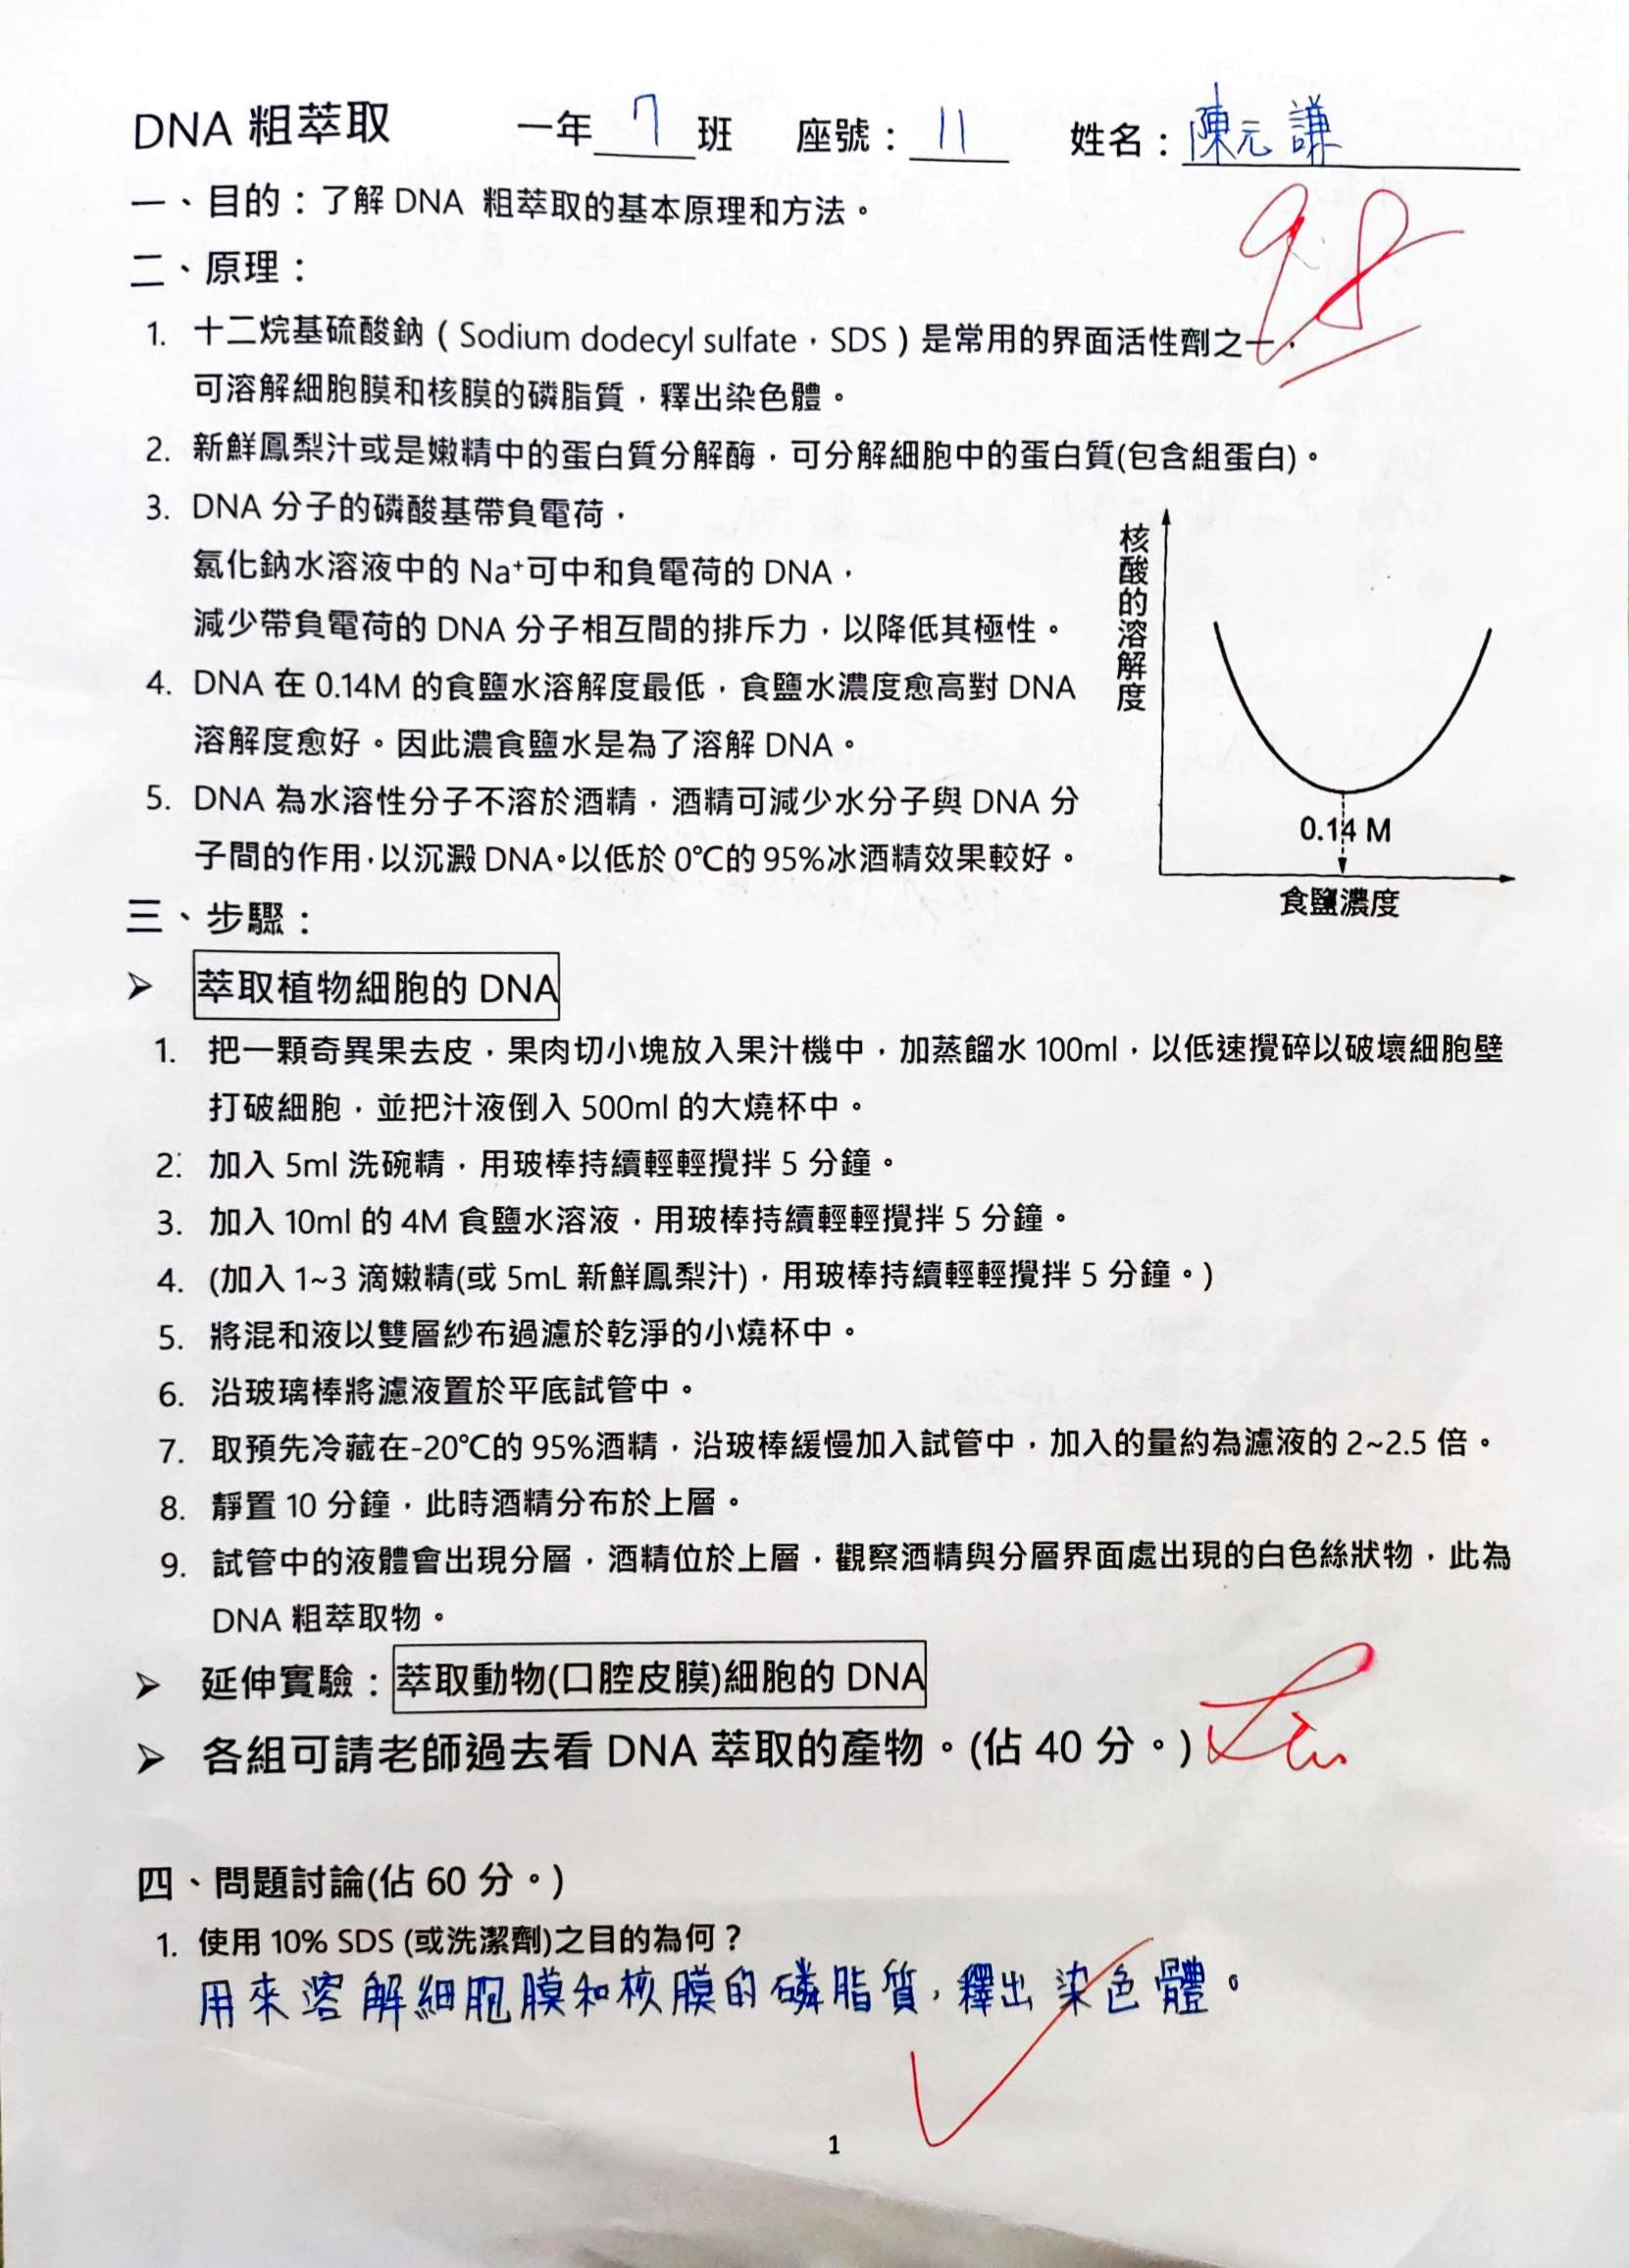 DNA 粗萃取 一年 7 班 座號： 11 姓名： 陳元謙
98
一、目的：了解 DNA 粗萃取的基本原理和方法。
二、原理：
1. 十二烷基硫酸鈉（Sodium dodecyl sulfate，SDS）是常用的界面活性劑之一，
可溶解細胞膜和核膜的磷脂質，釋出染色體。
2. 新鮮鳳梨汁或是嫩精中的蛋白質分解酶，可分解細胞中的蛋白質(包含組蛋白)。
3. DNA 分子的磷酸基帶負電荷，
氯化鈉水溶液中的 Na⁺可中和負電荷的 DNA，
減少帶負電荷的 DNA 分子相互間的排斥力，以降低其極性。
4. DNA 在 0.14M 的食鹽水溶解度最低，食鹽水濃度愈高對 DNA
溶解度愈好。因此濃食鹽水是為了溶解 DNA。
5. DNA 為水溶性分子不溶於酒精，酒精可減少水分子與 DNA 分
子間的作用，以沉澱 DNA。以低於 0℃的 95%冰酒精效果較好。
核酸的溶解度
0.14 M
食鹽濃度
三、步驟：
➢ 萃取植物細胞的 DNA
1. 把一顆奇異果去皮，果肉切小塊放入果汁機中，加蒸餾水 100ml，以低速攪碎以破壞細胞壁
打破細胞，並把汁液倒入 500ml 的大燒杯中。
2. 加入 5ml 洗碗精，用玻棒持續輕輕攪拌 5 分鐘。
3. 加入 10ml 的 4M 食鹽水溶液，用玻棒持續輕輕攪拌 5 分鐘。
4. (加入 1~3 滴嫩精(或 5mL 新鮮鳳梨汁)，用玻棒持續輕輕攪拌 5 分鐘。)
5. 將混和液以雙層紗布過濾於乾淨的小燒杯中。
6. 沿玻璃棒將濾液置於平底試管中。
7. 取預先冷藏在-20℃的 95%酒精，沿玻棒緩慢加入試管中，加入的量約為濾液的 2~2.5 倍。
8. 靜置 10 分鐘，此時酒精分布於上層。
9. 試管中的液體會出現分層，酒精位於上層，觀察酒精與分層界面處出現的白色絲狀物，此為
DNA 粗萃取物。
➢ 延伸實驗：萃取動物(口腔皮膜)細胞的 DNA
➢ 各組可請老師過去看 DNA 萃取的產物。(佔 40 分。)
四、問題討論(佔 60 分。)
1. 使用 10% SDS (或洗潔劑)之目的為何？
用來溶解細胞膜和核膜的磷脂質，釋出染色體。
1